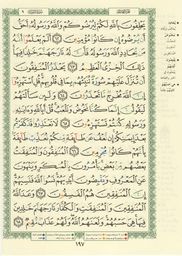 يَحْلِفُونَ بِاللَّهِ لَكُمْ لِيُرْضُوكُمْ وَاللَّهُ وَرَسُولُهُ أَحَقُّ
أَن يُرْضُوهُ إِن كَانُوا مُؤْمِنِينَ ٦٢ أَلَمْ يَعْلَمُوا أَنَّهُ
مَن يُحَادِدِ اللَّهَ وَرَسُولَهُ فَأَنَّ لَهُ نَارَ جَهَنَّمَ خَالِدًا فِيهَا
ذَٰلِكَ الْخِزْيُ الْعَظِيمُ ٦٣ يَحْذَرُ الْمُنَافِقُونَ
أَن تُنَزَّلَ عَلَيْهِمْ سُورَةٌ تُنَبِّئُهُم بِمَا فِي قُلُوبِهِمْ قُلِ اسْتَهْزِئُوا
إِنَّ اللَّهَ مُخْرِجٌ مَّا تَحْذَرُونَ ٦٤ وَلَئِن سَأَلْتَهُمْ
لَيَقُولُنَّ إِنَّمَا كُنَّا نَخُوضُ وَنَلْعَبُ قُلْ أَبِاللَّهِ وَآيَاتِهِ
وَرَسُولِهِ كُنتُمْ تَسْتَهْزِئُونَ ٦٥ لَا تَعْتَذِرُوا قَدْ كَفَرْتُم
بَعْدَ إِيمَانِكُمْ إِن نَّعْفُ عَن طَائِفَةٍ مِّنكُمْ نُعَذِّبْ طَائِفَةً
بِأَنَّهُمْ كَانُوا مُجْرِمِينَ ٦٦ الْمُنَافِقُونَ وَالْمُنَافِقَاتُ
بَعْضُهُم مِّن بَعْضٍ يَأْمُرُونَ بِالْمُنكَرِ وَيَنْهَوْنَ
عَنِ الْمَعْرُوفِ وَيَقْبِضُونَ أَيْدِيَهُمْ نَسُوا اللَّهَ فَنَسِيَهُمْ إِنَّ
الْمُنَافِقِينَ هُمُ الْفَاسِقُونَ ٦٧ وَعَدَ اللَّهُ
الْمُنَافِقِينَ وَالْمُنَافِقَاتِ وَالْكُفَّارَ نَارَ جَهَنَّمَ خَالِدِينَ
فِيهَا هِيَ حَسْبُهُمْ وَلَعَنَهُمُ اللَّهُ وَلَهُمْ عَذَابٌ مُّقِيمٌ ٦٨
١٩٧